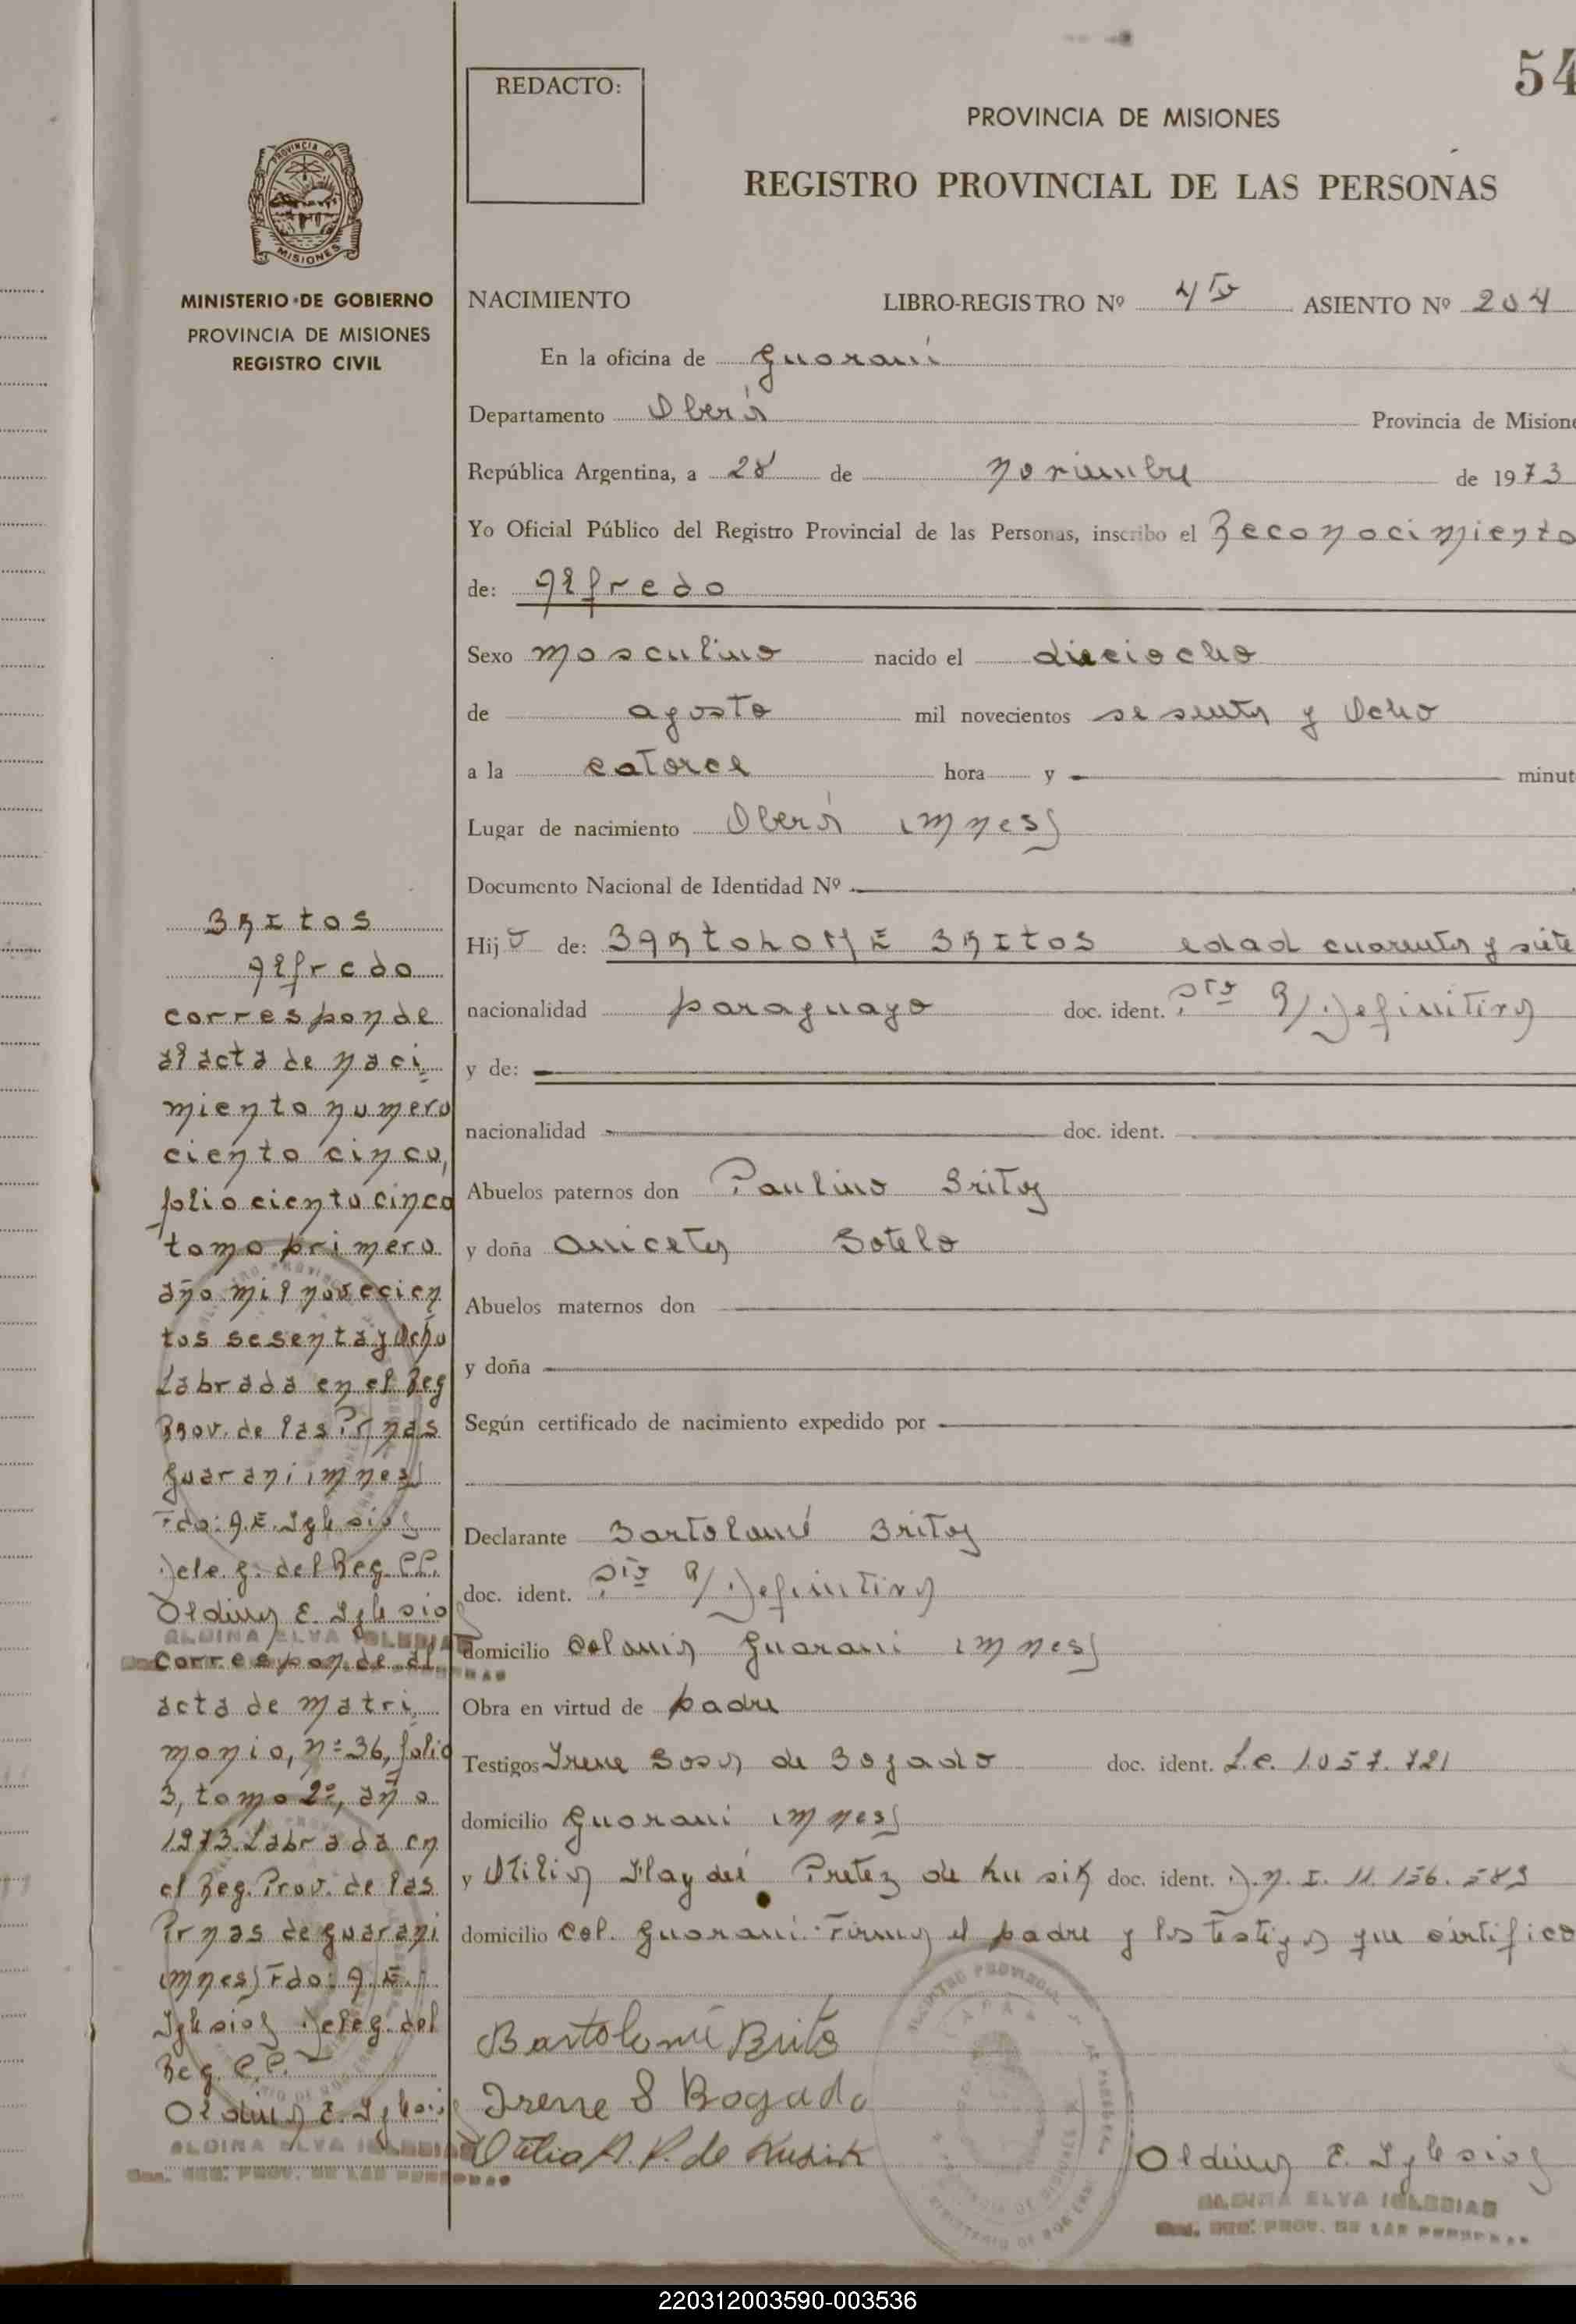 54
REDACTO:
PROVINCIA DE MISIONES
REGISTRO PROVINCIAL DE LAS PERSONAS
PROVINCIA DE
MISIONES
MINISTERIO DE GOBIERNO
PROVINCIA DE MISIONES
REGISTRO CIVIL
NACIMIENTO LIBRO-REGISTRO Nº 4º ASIENTO Nº 204
En la oficina de Guaraní
Departamento Oberá Provincia de Misione
República Argentina, a 28 de noviembre de 1973
Yo Oficial Público del Registro Provincial de las Personas, inscribo el Reconocimiento
de: Alfredo
Sexo masculino nacido el dieciocho
de agosto mil novecientos sesenta y Ocho
a la catorce hora y minut
Lugar de nacimiento Oberá (Mnes)
Documento Nacional de Identidad Nº
Hijo de: BARTOLOMÉ BRITOS edad cuarenta y siete
nacionalidad paraguayo doc. ident. Definitiva
y de:
nacionalidad doc. ident.
Abuelos paternos don Paulino Britos
y doña Aniceta Sotelo
Abuelos maternos don
y doña
Según certificado de nacimiento expedido por
Declarante Bartolomé Britos
doc. ident. Definitiva
domicilio Colonia Guaraní (Mnes)
Obra en virtud de padre
Testigos Irene Sosa de Bogado doc. ident. L.C. 1.057.721
domicilio Guaraní (Mnes)
y Otilia Pretez de Kusik doc. ident. D.N.I. 11.156.589
domicilio Col. Guaraní. Firma el padre y los testigos que certifico
Bartolomé Brito
Irene S Bogado
Otilia A. P. de Kusik
Aldina E. Iglesias
ALDINA ELVA IGLESIAS
REG. PROV. DE LAS PERSONAS
BRITOS
Alfredo
corresponde
al acta de naci
miento numero
ciento cinco,
folio ciento cinco
tomo primero
año mil novecien
tos sesenta y Ocho
Labrada en el Reg
Prov. de las Prnas
Guaraní (Mnes)
Fdo: A.E. Iglesias
Deleg. del Reg. PP.
Aldina E. Iglesias
ALDINA ELVA IGLESIAS
Corresponde al
acta de matri
monio, nº 36, folio
3, tomo 2º, año
1973. Labrada en
el Reg. Prov. de las
Prnas de Guaraní
(Mnes) Fdo: A.E.
Iglesias Deleg. del
Reg. PP.
Aldina E. Iglesias
ALDINA ELVA IGLESIAS
REG. PROV. DE LAS PERSONAS
220312003590-003536